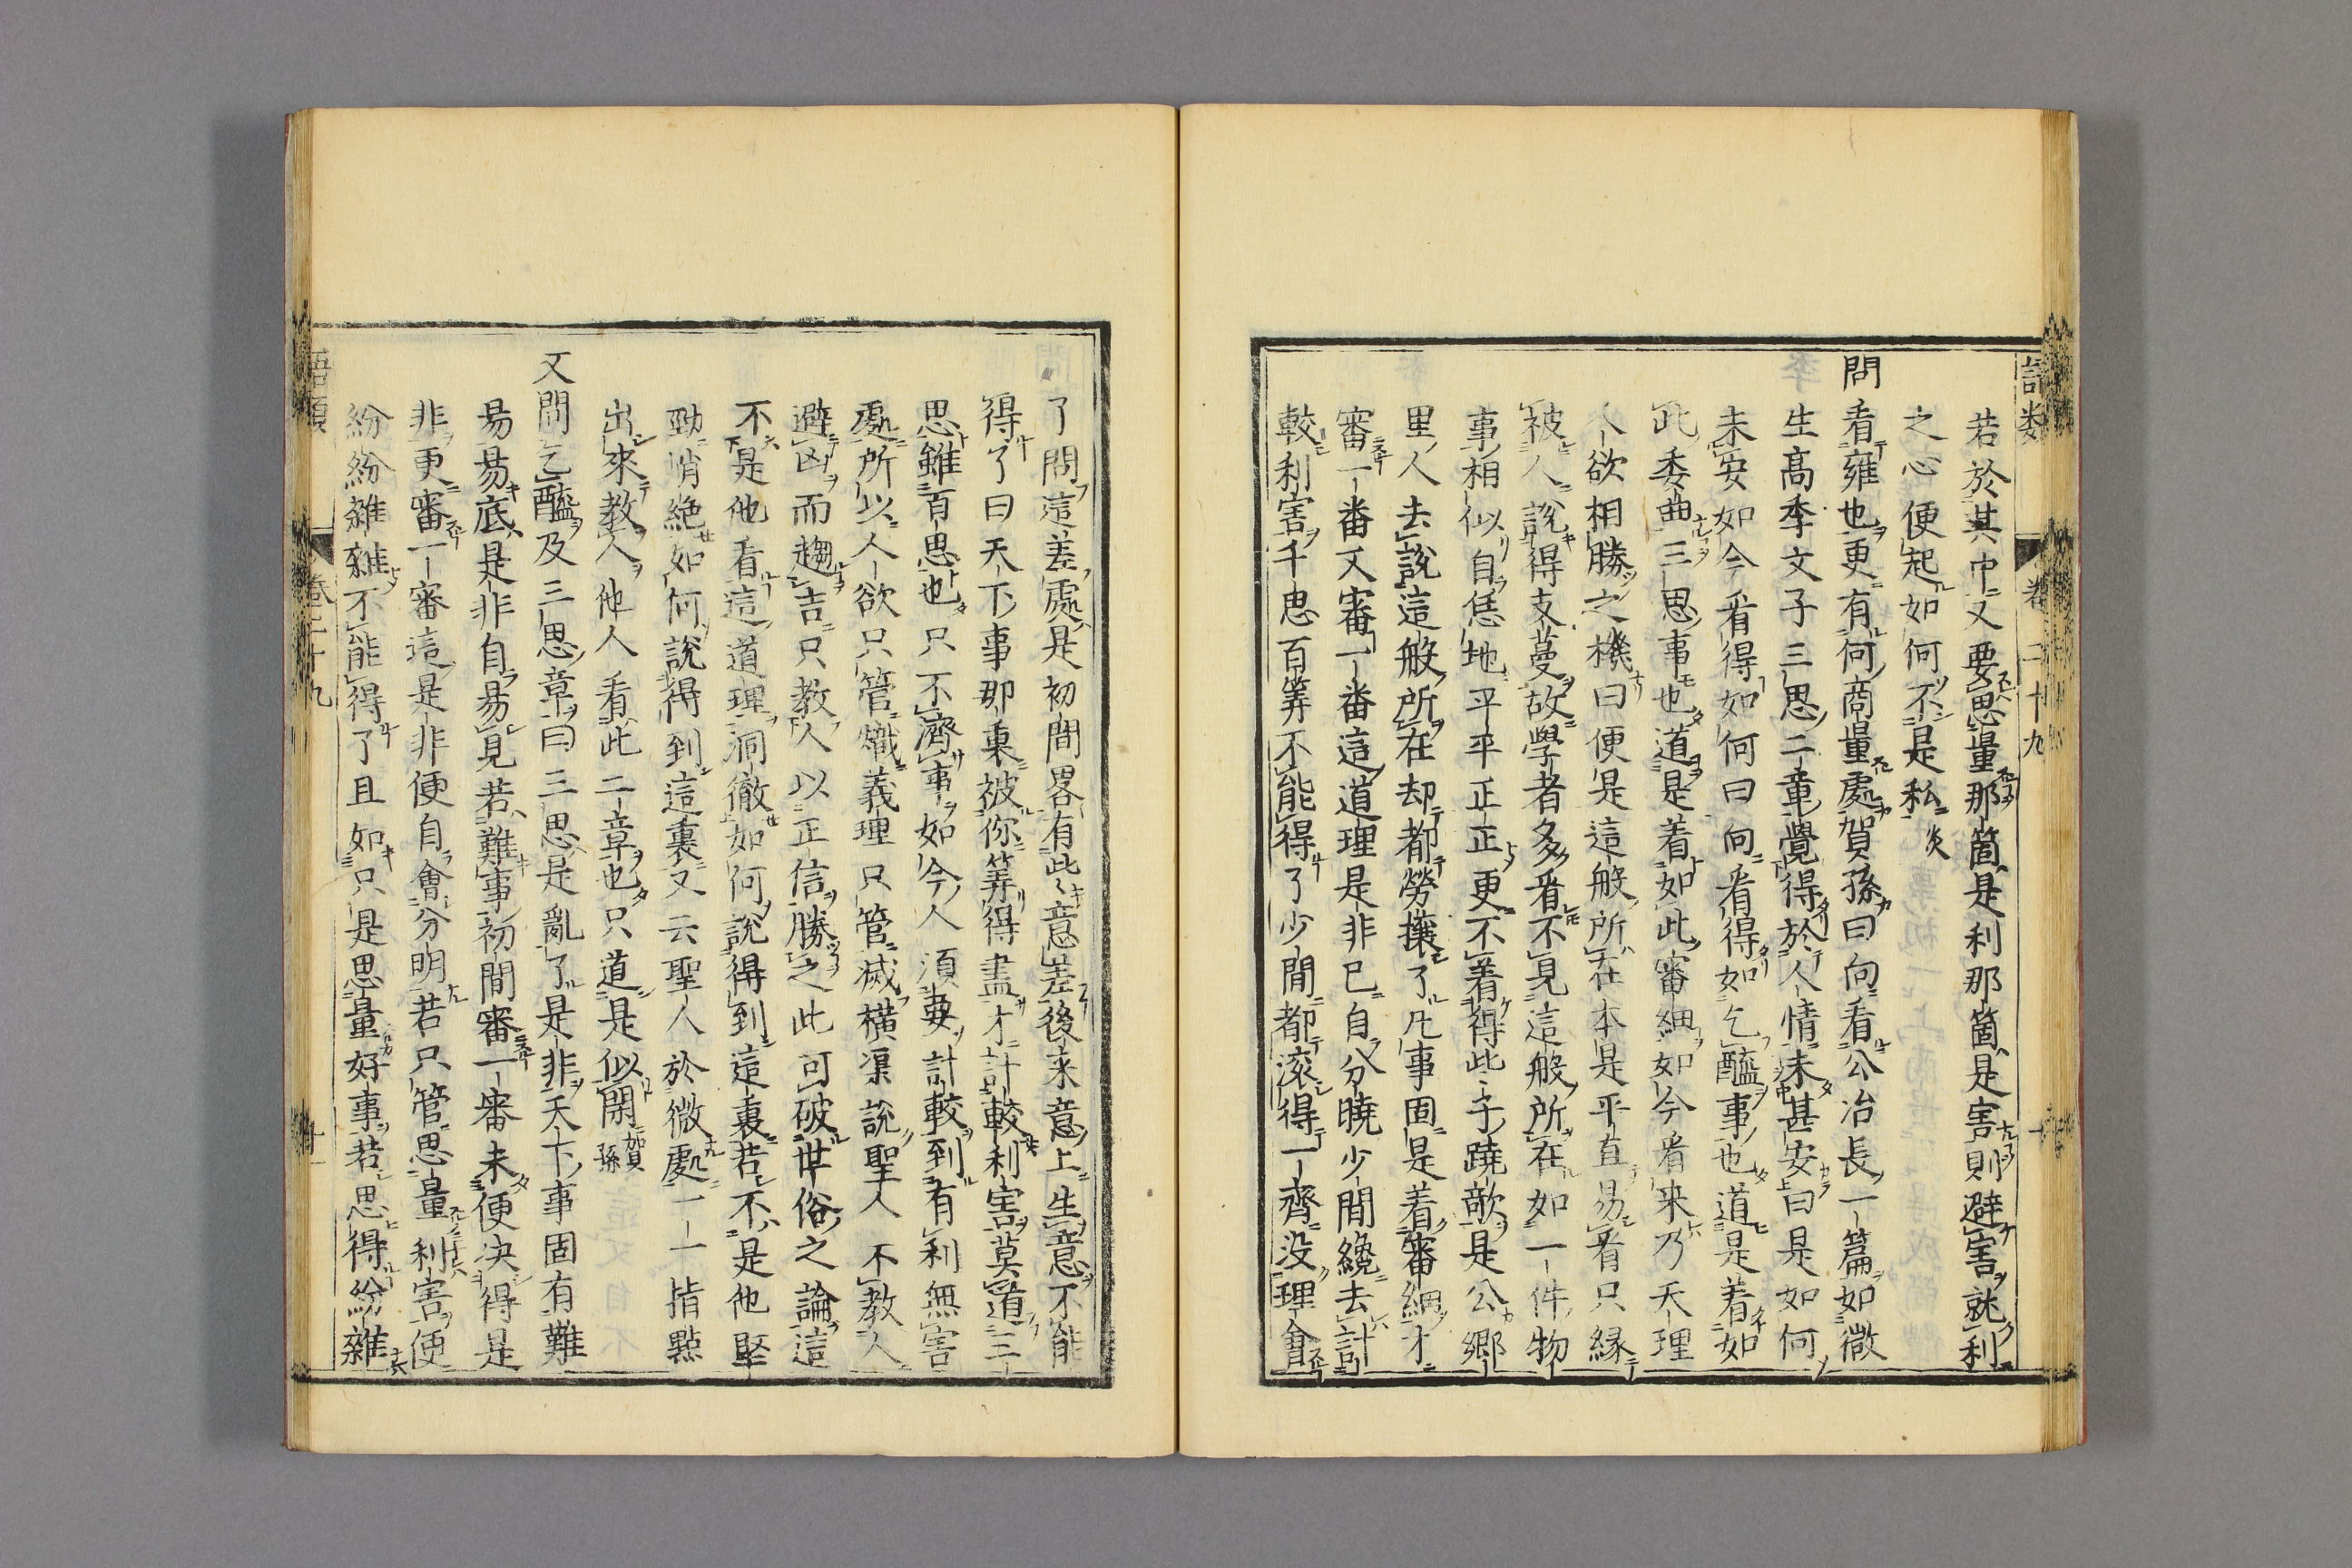 若於其中又要思量那箇是利那箇是害則避害就利
之心便起如何不是私 炎
問看雍也更有何商量處賀孫曰向看公冶長一篇如微
生高季文子三思二章覺得於人情未甚安曰是如何
未安如今看得如何曰向看得如乞醯事也道是着如
此委曲三思事也道是着如此審細如今看来乃天理
人欲相勝之機曰便是這般所在本是平直易看只緣
被人說得支蔓故學者多看不見這般所在如一件物
事相似自恁地平平正正更不着得些子蹺欹是公鄉
里人去說這般所在却都勞攘了凡事固是着審細才
審一番又審一番這道理是非已自分曉少間纔去計
較利害千思百筭不能得了少間都滚得一齊没理會
了問這差處是初間畧有此意差後来意上生意不能
得了曰天下事那裏被你筭得盡才計較利害莫道三
思雖百思也只不濟事如今人須要計較到有利無害
處所以人欲只管熾義理只管滅橫渠說聖人不教人
避凶而趨吉只教人以正信勝之此可破世俗之論這
不是他看這道理洞徹如何說得到這裏若不是他堅
勁峭絶如何說得到這裏又云聖人於微處一一指點
出來教人他人看此二章也只道是似閑 賀孫
又問乞醯及三思章曰三思是亂了是非天下事固有難
易易底是非自易見若難事初間審一審未便决得是
非更審一審這是非便自會分明若只管思量利害便
紛紛雜雜不能得了且如只是思量好事若思得紛雜
語類
卷二十九
十一